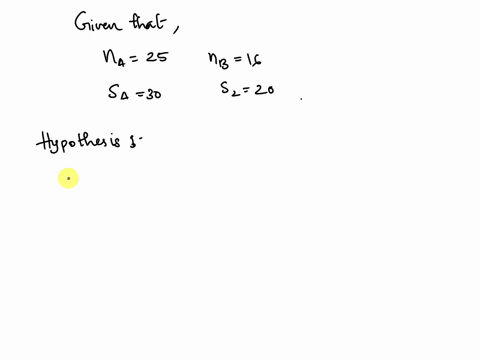 Given that,
n_A = 25 n_B = 16
S_A = 30 S_2 = 20 .
Hypothesis :-